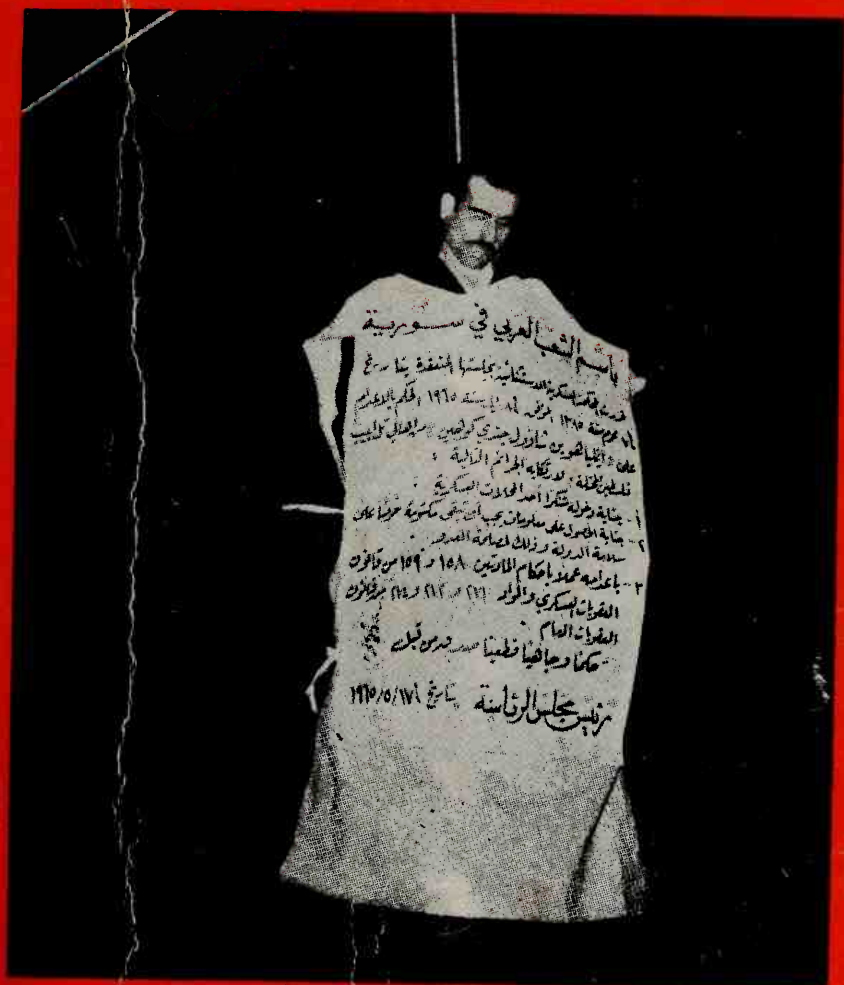 باسم الشعب العربي في سورية
المحكمة العسكرية الاستثنائية بجلستها المنعقدة بتاريخ
محرم سنة ١٣٨٥ الموافق لـ ٨ سنة ١٩٦٥ الحكم بالاعدام
على ايلياهو بن شاؤول جندي كوهين من اهالي تل ابيب
فلسطين المحتلة لارتكابه الجرائم التالية :
١- جناية دخوله متنكرا احد المحلات العسكرية .
٢- جناية الحصول على معلومات يجب أن تبقى مكتومة حرصا على
سلامة الدولة وذلك لمصلحة العدو .
٣- باعدامه عملا باحكام المادتين ١٥٨ و ١٥٩ من قانون
العقوبات العسكري والمواد و ٢٧٢ و ٢٧٤ من قانون
العقوبات العام .
حكما وجاهيا قطعيا صدر من قبل
رئيس مجلس الرئاسة بتاريخ ١٧/٥/١٩٦٥